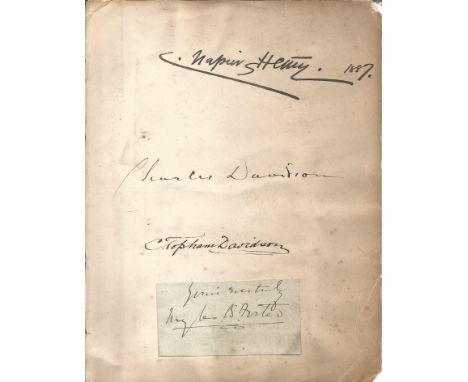 C. Napier Hemy. 1887.
Charles Davidson
C. Topham Davidson
Yours very truly
Myles B Foster